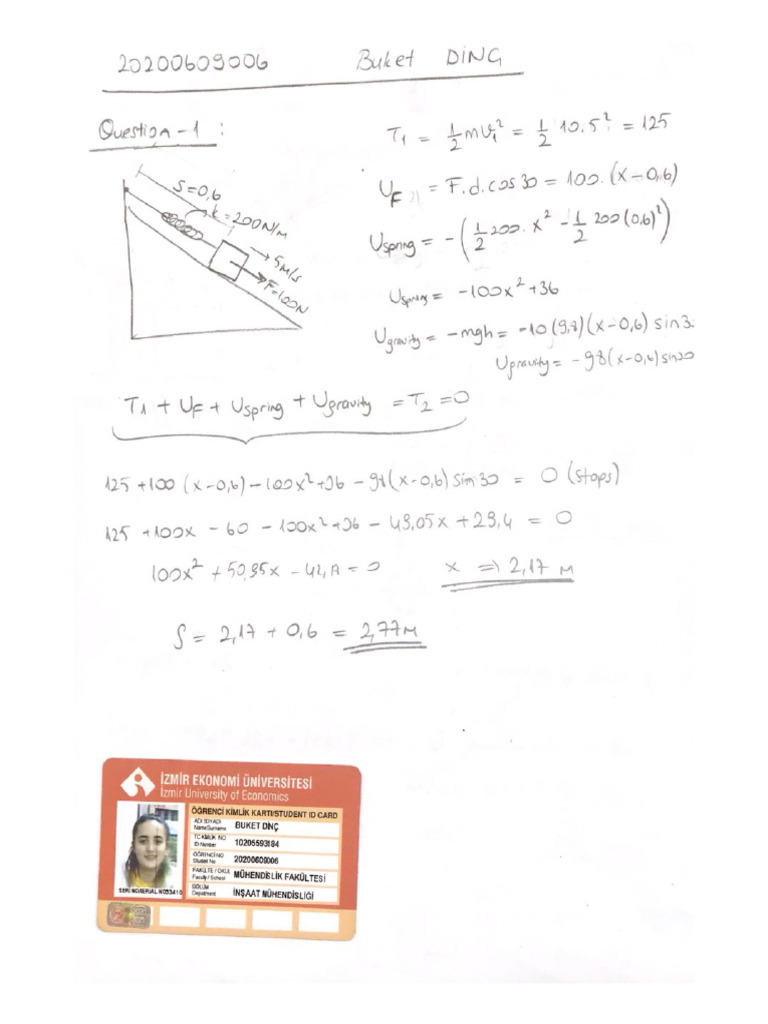 20200609006 Buket DİNÇ
Question-1 :
S=0,6
k=200N/M
5M/s
F=100N
T1 = 1/2 mV1² = 1/2 10.5² = 125
UF = F.d.cos30 = 100.(x-0,6)
Uspring = -(1/2 200.x² - 1/2 200(0,6)²)
Uspring = -100x²+36
Ugravity = -mgh = -10(9,8)(x-0,6) sin3
Ugravity = -98(x-0,6)sin
T1 + UF + Uspring + Ugravity = T2 = 0
125+100(x-0,6)-100x²+36-98(x-0,6)sin30 = 0 (stops)
125+100x-60-100x²+36-49,05x+29,4 = 0
100x²+50,95x = 0 x ⇒ 2,17 M
S = 2,17 + 0,6 = 2,77M
İZMİR EKONOMİ ÜNİVERSİTESİ
İzmir University of Economics
ÖĞRENCİ KİMLİK KARTI/STUDENT ID CARD
ADI SOYADI
Name Surname BUKET DNÇ
TC KİMLİK NO
ID Number 10205593184
ÖĞRENCİ NO
Student No 20200609006
FAKÜLTE / OKUL
Faculty / School MÜHENDİSLİK FAKÜLTESİ
BÖLÜM
Department İNŞAAT MÜHENDİSLİĞİ